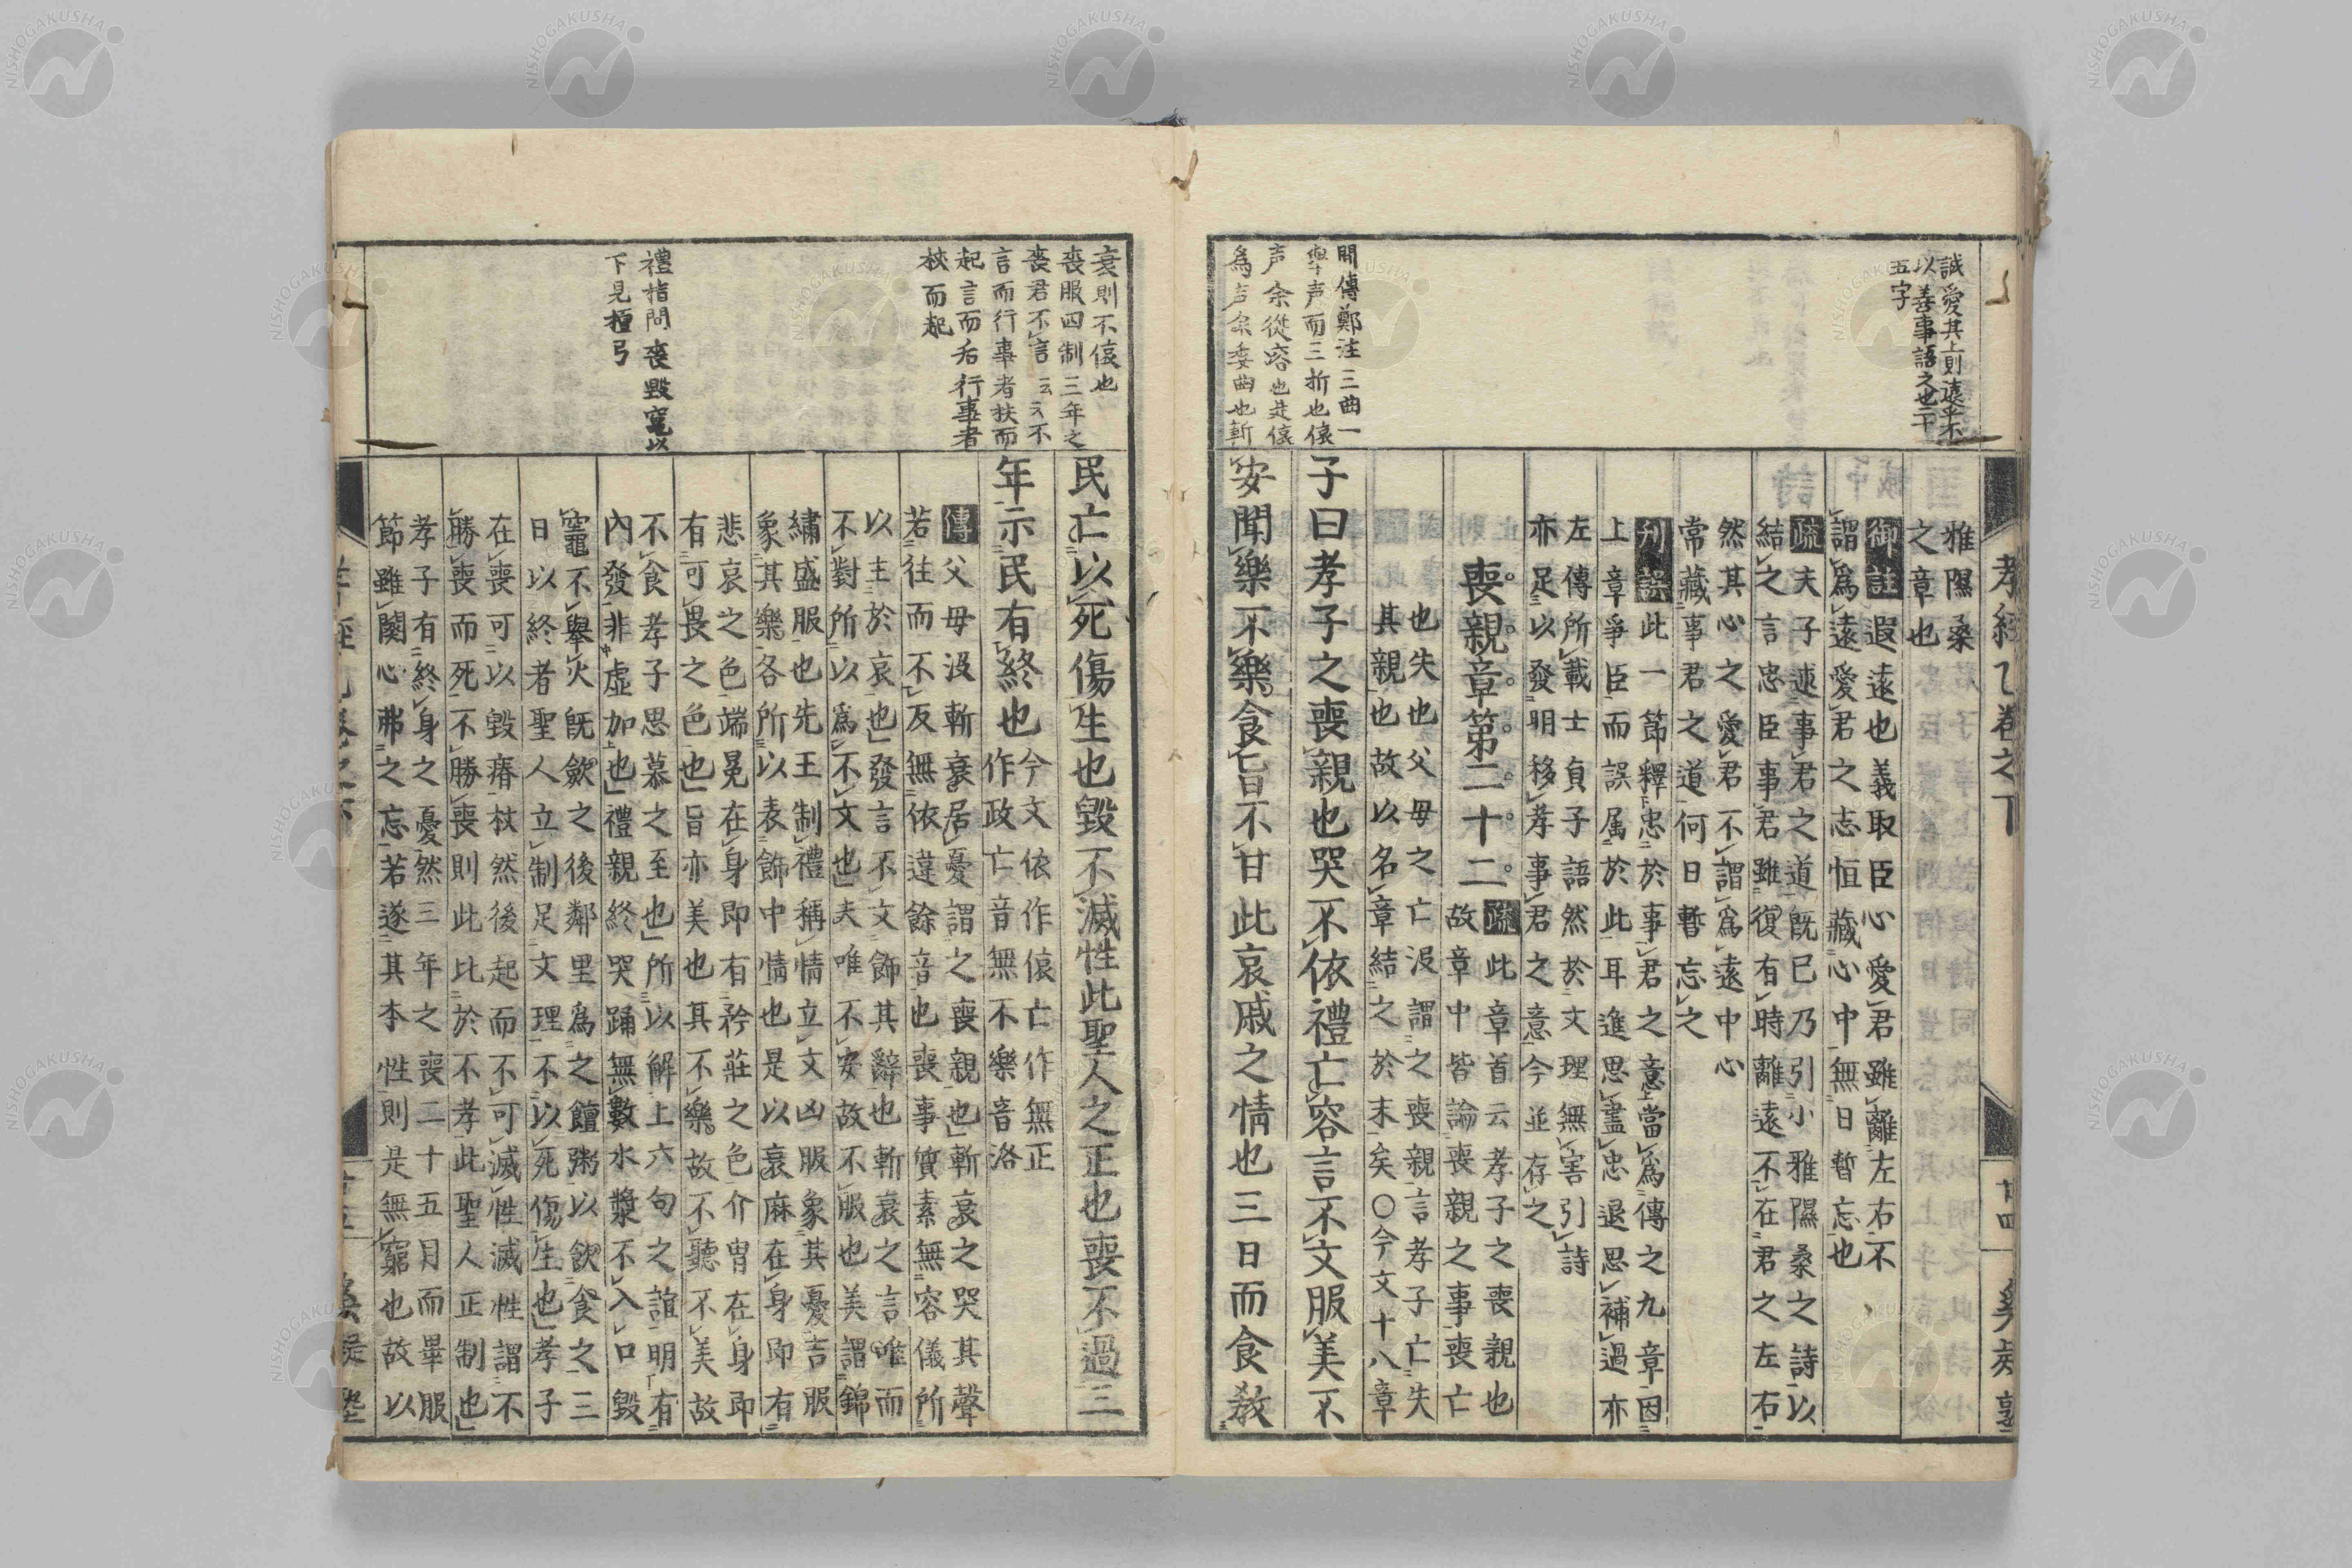 誠愛其上則遠乎不
以善事語之也二十
五字
雅隰桑
之章也
御註遐遠也義取臣心愛君雖離左右不
謂爲遠愛君之志恒藏心中無日暫忘也
疏夫子述事君之道既已乃引小雅隰桑之詩以
結之言忠臣事君雖復有時離遠不在君之左右
然其心之愛君不謂爲遠中心
常藏事君之道何日暫忘之
刊誤此一節釋忠於事君之意當爲傳之九章因
上章爭臣而誤属於此耳進思盡忠退思補過亦
左傳所載士貞子語然於文理無害引詩
亦足以發明移孝事君之意今並存之
喪親章第二十二
疏此章首云孝子之喪親也
故章中皆論喪親之事喪亡
也失也父母之亡没謂之喪親言孝子亡失
其親也故以名章結之於末矣○今文十八章
間傳鄭注三曲一
舉声而三折也偯
声余從容也是偯
爲声余委曲也斬
子曰孝子之喪親也哭不依禮亡容言不文服美不
安聞樂不樂食旨不甘此哀戚之情也三日而食教
孝經乙卷之下
廿四
衰則不偯也
喪服四制三年之
喪君不言云云不
言而行事者扶而
起言而后行事者
杖而起
民亡以死傷生也毀不滅性此聖人之正也喪不過三
年示民有終也
今文依作偯亡作無正
作政亡音無不樂音洛
傳父母没斬衰居憂謂之喪親也斬衰之哭其聲
若往而不反無依違餘音也喪事質素無容儀所
以主於哀也發言不文飾其辭也斬衰之言唯而
不對所以爲不文也夫唯不安故不服也美謂錦
繡盛服也先王制禮稱情立文凶服象其憂吉服
象其樂各所以表飾中情也是以衰麻在身即有
悲哀之色端冕在身即有矜莊之色介胄在身即
有可畏之色也旨亦美也其不樂故不聽不美故
不食孝子思慕之至也所以解上六句之誼明有
內發非虛加也禮親終哭踊無數水漿不入口毀
竃不舉火既歛之後鄰里爲之饘粥以飲食之三
日以終者聖人立制足文理不以死傷生也孝子
在喪可以毀瘠杖然後起而不可滅性滅性謂不
勝喪而死不勝喪則此比於不孝此聖人正制也
孝子有終身之憂然三年之喪二十五月而畢服
節雖闋心弗之忘若遂其本性則是無窮也故以
禮指問喪毀竃以
下見檀弓